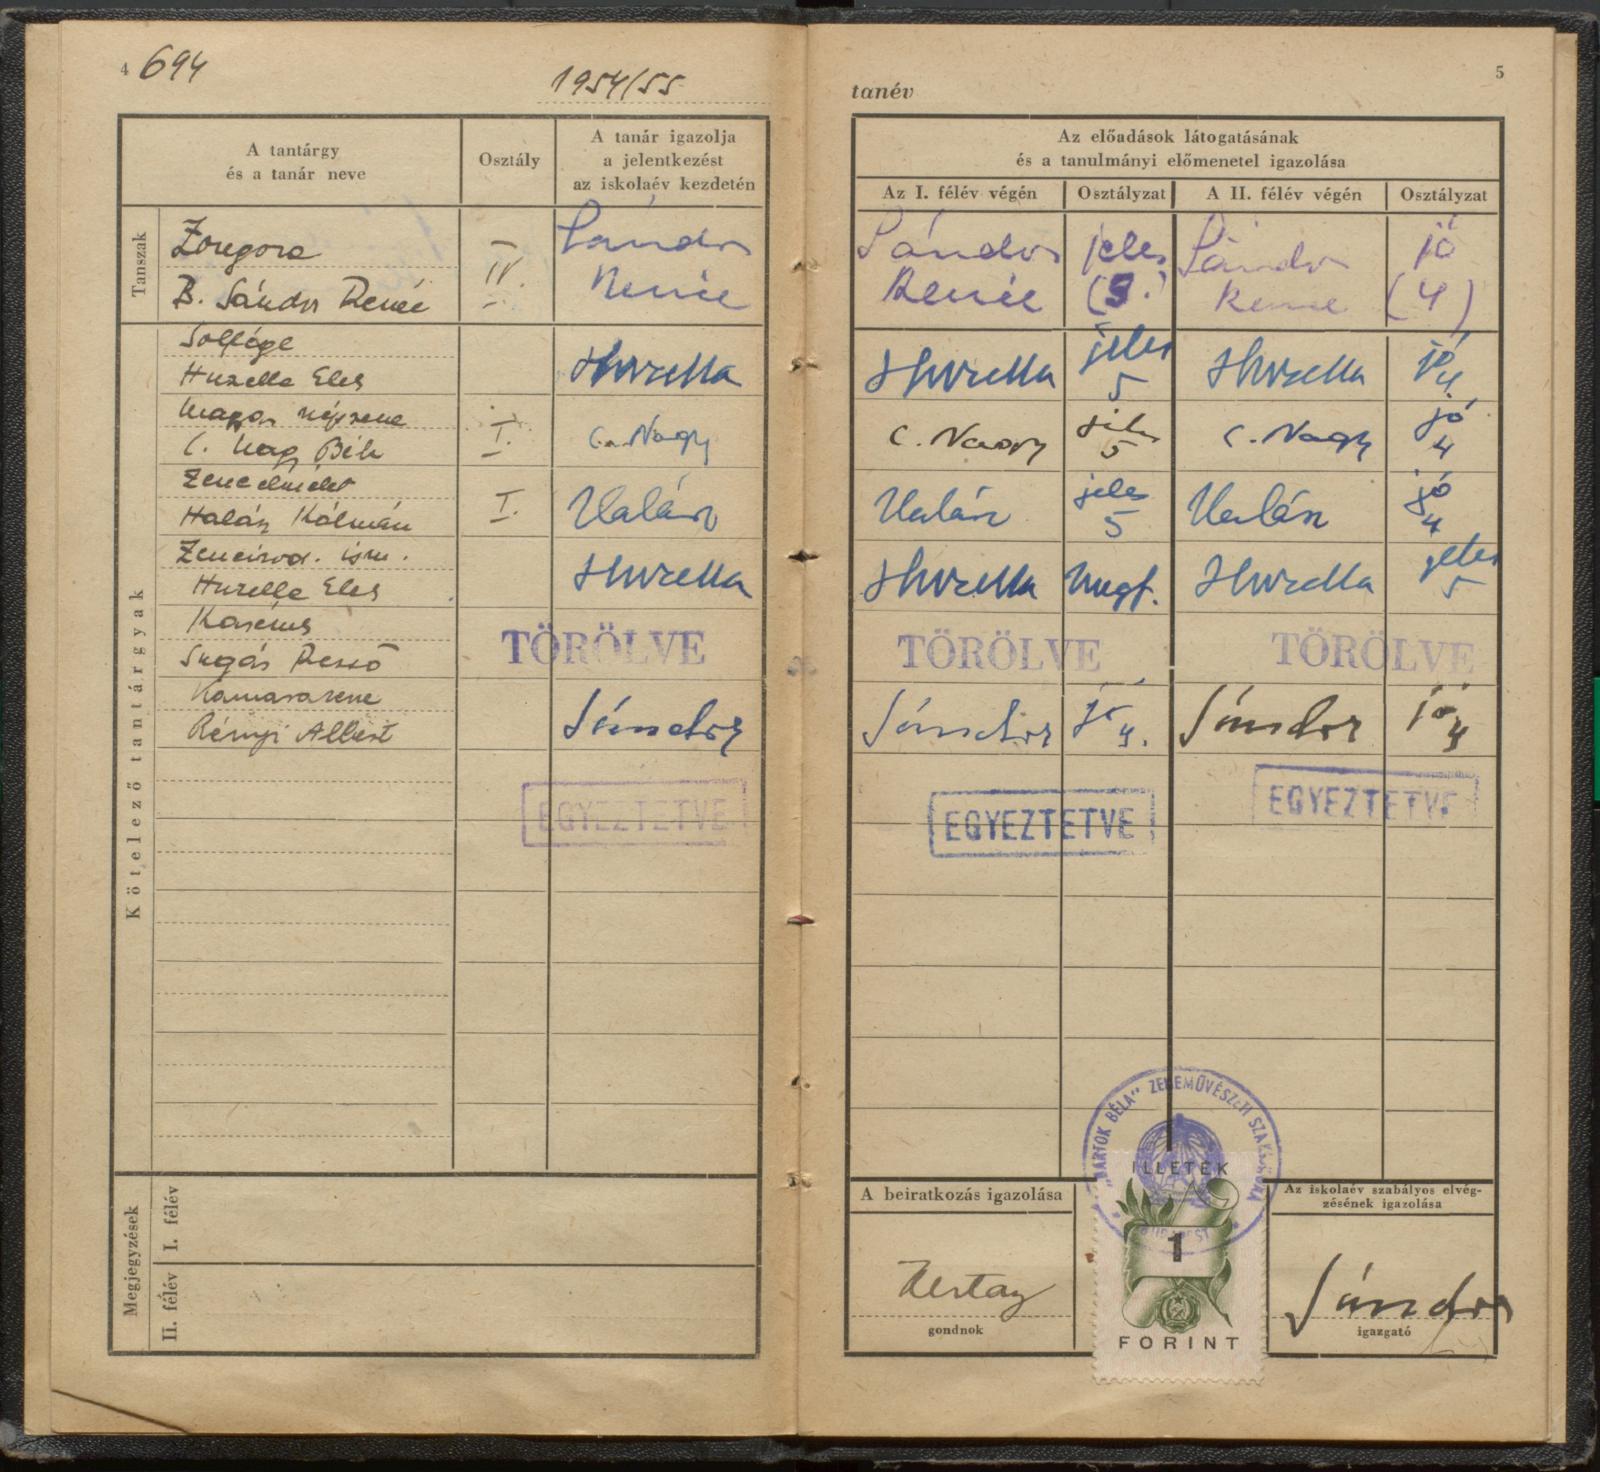 4 694
1954/55
A tantárgy
és a tanár neve
Osztály
A tanár igazolja
a jelentkezést
az iskolaév kezdetén
Tanszak
Zongora
B. Sándor Renée
IV.
Sándor
Renée
Kötelező tantárgyak
Solfége
Huzella Elek
Huzella
Magyar népzene
C. Nagy Béla
I.
C. Nagy
Zeneelmélet
Halász Kálmán
I.
Halász
Zeneirod. ism.
Huzella Elek
Huzella
Karének
Sugár Rezső
TÖRÖLVE
Kamarazene
Rényi Albert
Sándor
EGYEZTETVE
Megjegyzések
I. félév
II. félév
5
tanév
Az előadások látogatásának
és a tanulmányi előmenetel igazolása
Az I. félév végén
Osztályzat
A II. félév végén
Osztályzat
Sándor jeles Sándor jó
Renée (5.) Renée (4)
Huzella jeles 5 Huzella jó 4
C. Nagy jeles 5 C. Nagy jó 4
Halász jeles 5 Halász jó 4
Huzella Megf. Huzella jeles 5
TÖRÖLVE TÖRÖLVE
Sándor jó 4. Sándor jó 4
EGYEZTETVE EGYEZTETVE
"BARTÓK BÉLA" ZENEMŰVÉSZETI SZAKISKOLA
BUDAPEST
ILLETÉK
1
FORINT
A beiratkozás igazolása
gondnok
Az iskolaév szabályos elvég-
zésének igazolása
Sándor
igazgató